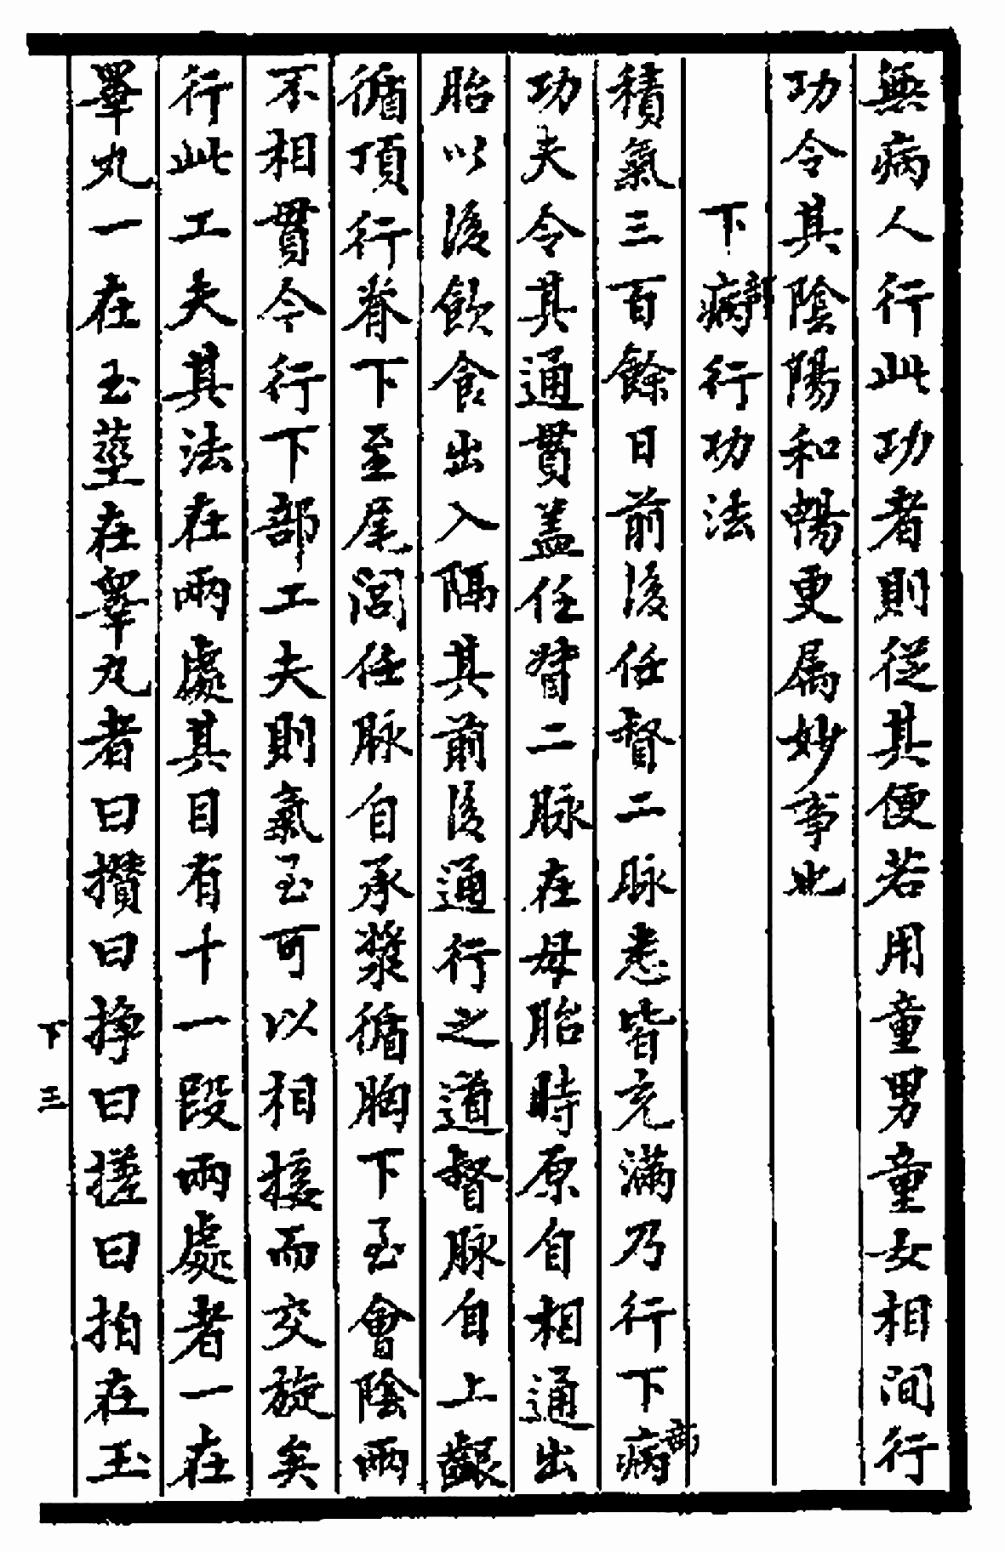 無病人行此功者則從其便若用童男童女相間行
功令其陰陽和暢更属妙事也
下病部行功法
積氣三百餘日前後任督二脉悉皆充滿乃行下病部
功夫令其通貫蓋任督二脉在母胎時原自相通出
胎以後飲食出入隔其前後通行之道督脉自上齦
循頂行脊下至尾閭任脉自承漿循胸下至會陰兩
不相貫今行下部工夫則氣至可以相接而交旋矣
行此工夫其法在兩處其目有十一段兩處者一在
睾丸一在玉莖在睾丸者曰攢曰掙曰搓曰拍在玉
下 三